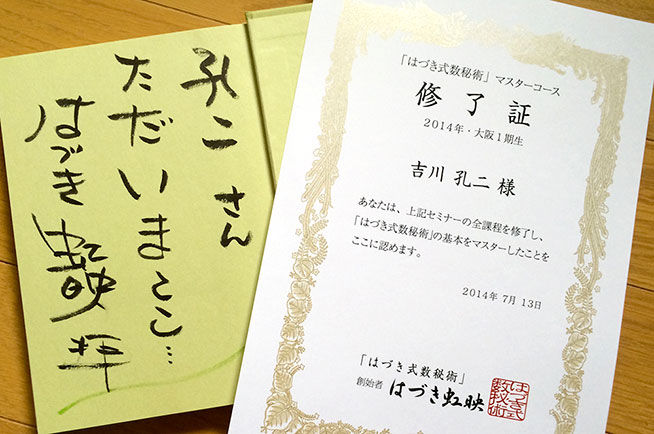 孔二さん
ただいまここ…
はづき虹映 拝
「はづき式数秘術」マスターコース
修了証
2014年・大阪1期生
吉川 孔二 様
あなたは、上記セミナーの全課程を修了し、
「はづき式数秘術」の基本をマスターしたことを
ここに認めます。
2014年 7月 13日
「はづき式数秘術」
創始者 はづき虹映
はづき式
数秘術